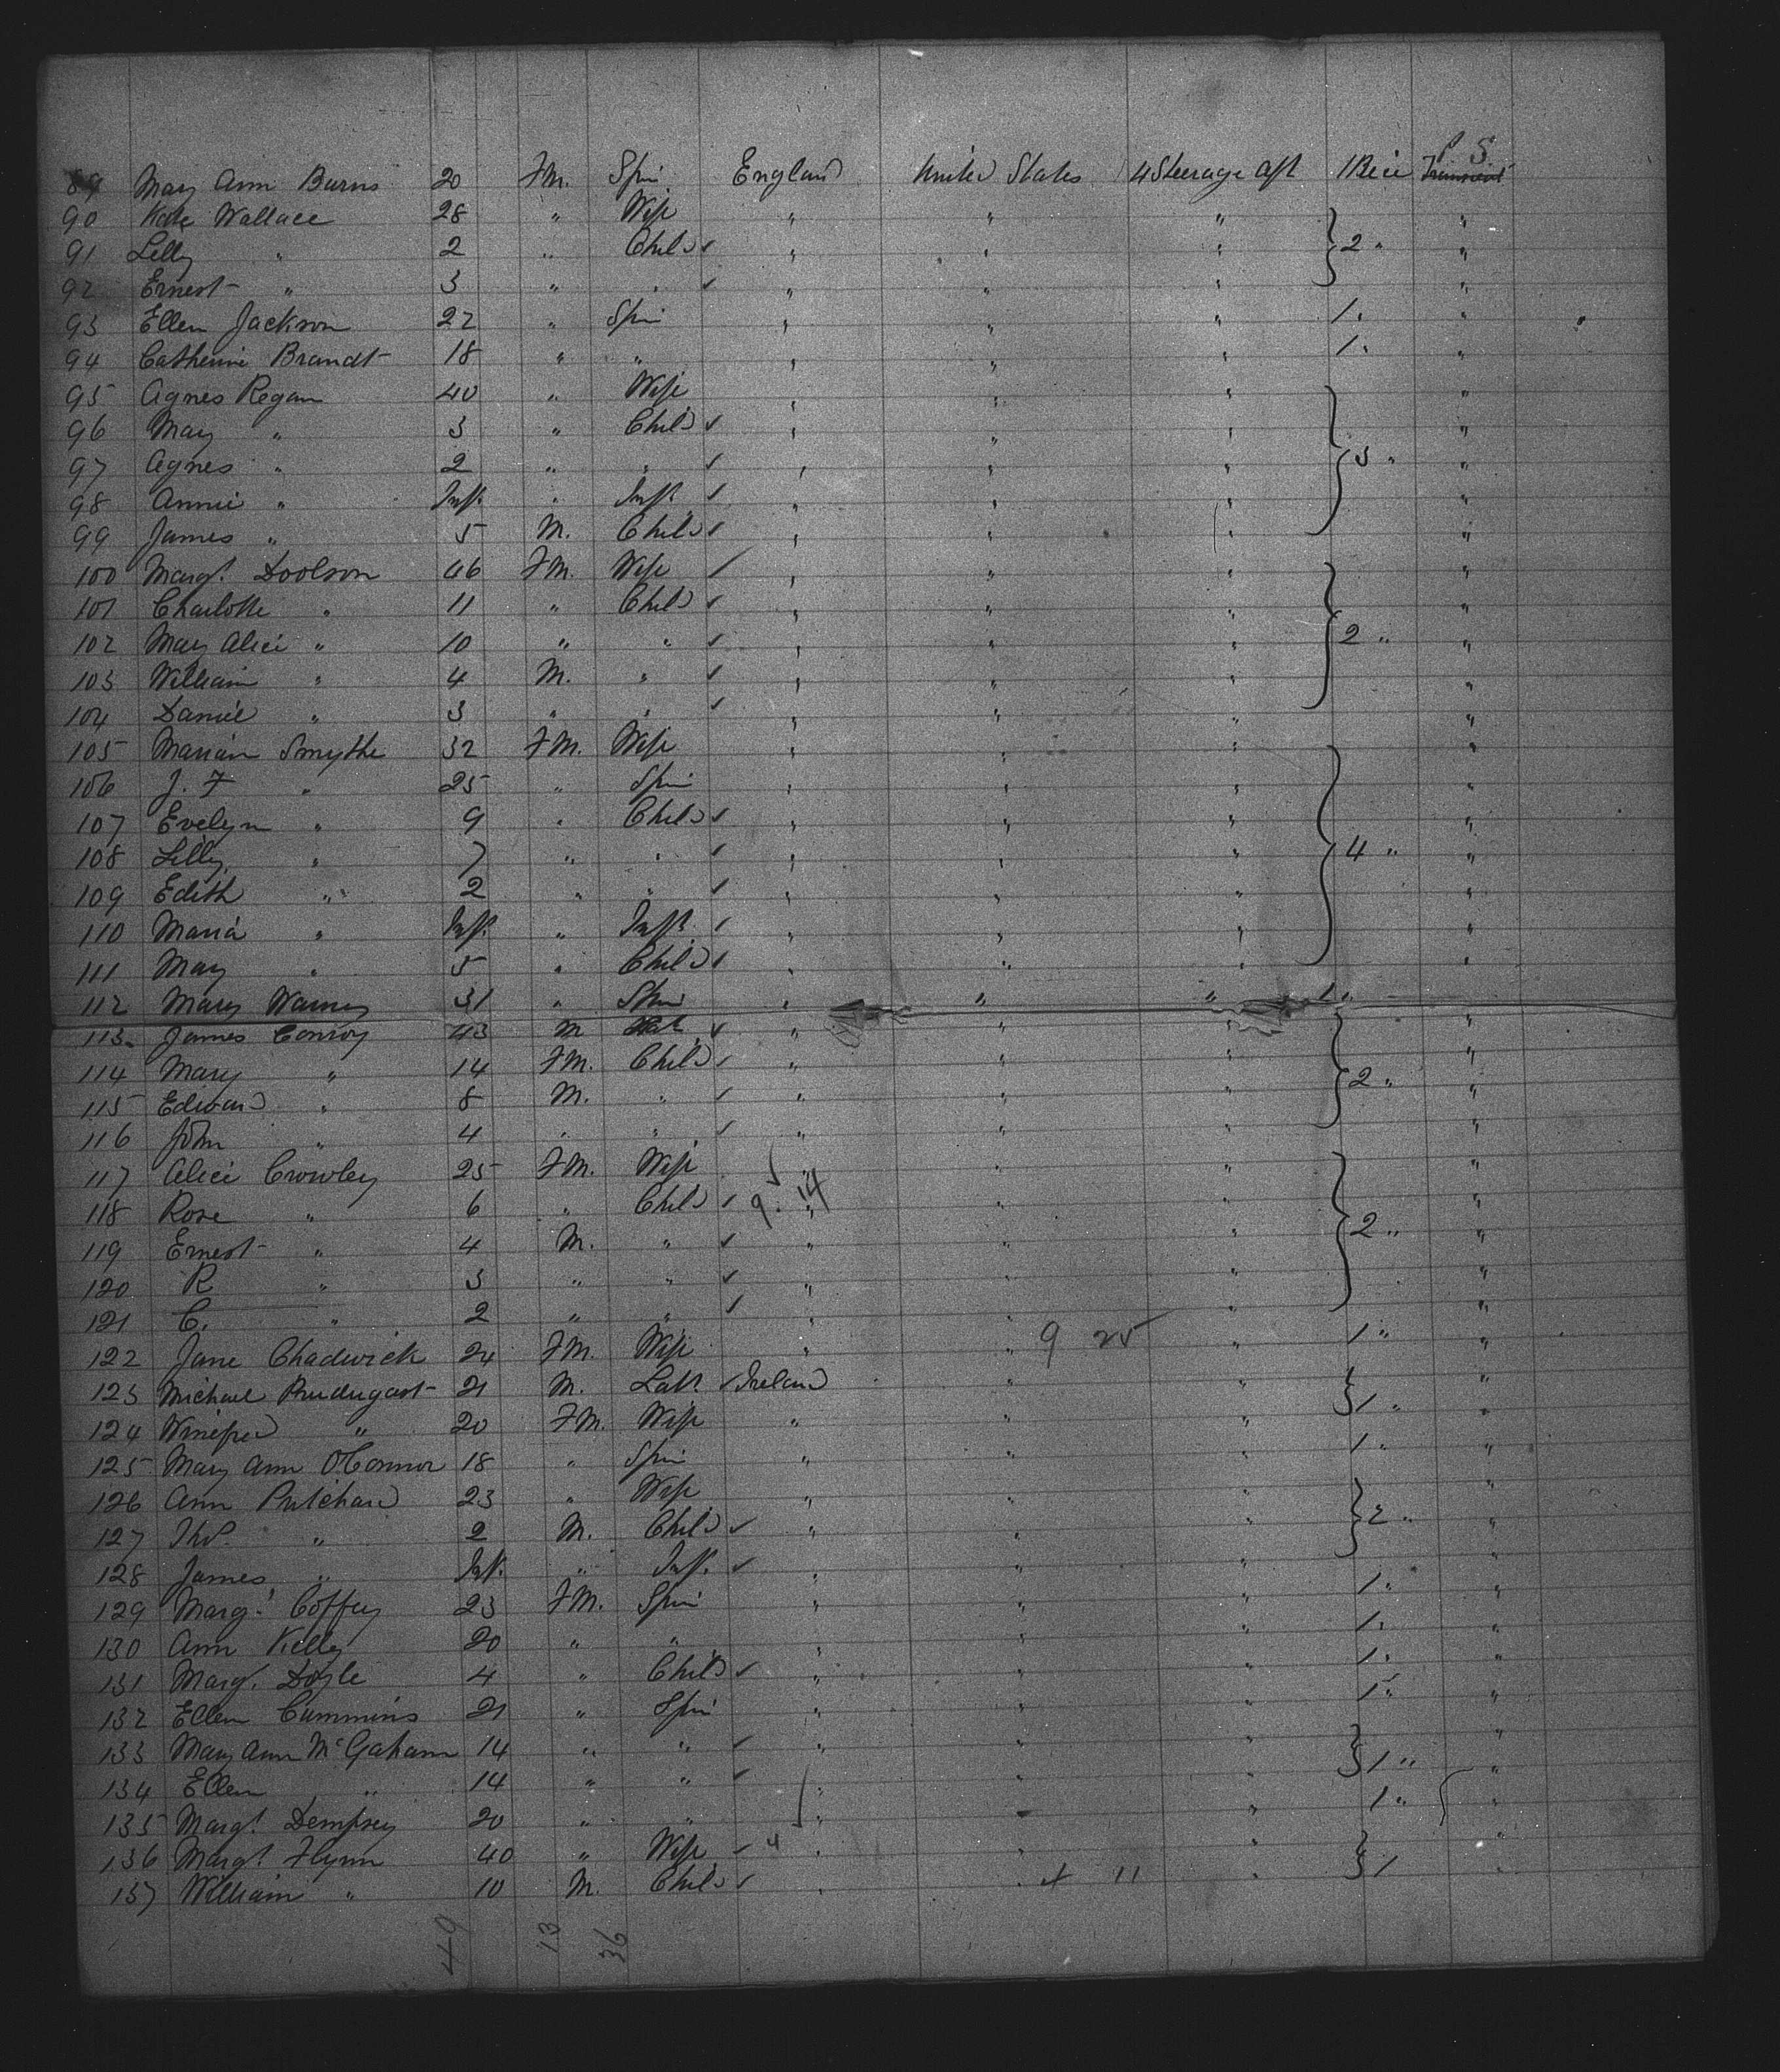 P S
89 Mary Ann Burns 20 Fm. Spin England United States 4 Steerage Aft 1 Piece Transient
90 Kate Wallace 28 " Wife " " " "
91 Lilly " 2 " Child ✓ " " " } 2 " "
92 Ernest " 3 " " ✓ " " " "
93 Ellen Jackson 22 " Spin " " " 1 " "
94 Catherine Brandt 18 " " " " " 1 " "
95 Agnes Regan 40 " Wife " " " "
96 May " 3 " Child ✓ " " " "
97 Agnes " 2 " " ✓ " " " } 3 " "
98 Annie " Inft. " Inft. ✓ " " " "
99 James " 5 M. Child ✓ " " " "
100 Margt. Doolson 46 Fm. Wife ✓ " " " "
101 Charlotte " 11 " Child ✓ " " " "
102 May Alice " 10 " " ✓ " " " } 2 " "
103 William " 4 M. " ✓ " " " "
104 Daniel " 3 " " ✓ " " " "
105 Marian Smythe 32 Fm. Wife " " " "
106 J. F " 25 " Spin " " " "
107 Evelyn " 9 " Child ✓ " " " "
108 Lilly " 7 " " ✓ " " " } 4 " "
109 Edith " 2 " " ✓ " " " "
110 Maria " Inft. " Inft. ✓ " " " "
111 May " 5 " Child ✓ " " " "
112 Mary 31 " Spin " " " 1 "
113 James Conroy 43 M ✓ " " " "
114 Mary " 14 Fm. Child ✓ " " " } 2 " "
115 Edward " 8 M. " ✓ " " " "
116 John " 4 " " ✓ " " " "
117 Alice Crowley 25 Fm. Wife " " " "
118 Rose " 6 " Child ✓ 9. 14 " " " "
119 Ernest " 4 M. " ✓ " " " } 2 " "
120 R " 3 " " ✓ " " " "
121 C. " 2 " " ✓ " " " "
122 Jane Chadwick 24 Fm. Wife " " 9 25 " 1 " "
123 Michael 21 M. Labr. ✓ Ireland " " "
124 Winifred " 20 Fm. Wife " " " } 1 " "
125 Mary Ann O'Connor 18 " Spin " " " 1 " "
126 Ann Pritchard 23 " Wife " " " "
127 Thos. " 2 M. Child ✓ " " " } 2 " "
128 James " Inft. " Inft. ✓ " " " "
129 Margt. Coffey 23 Fm. Spin " " " 1 " "
130 Ann Kelly 20 " " " " " 1 " "
131 Margt. Doyle 4 " Child ✓ " " " 1 " "
132 Ellen Cummins 21 " Spin " " " 1 " "
133 Mary Ann McGahann 14 " " ✓ " " " "
134 Ellen " 14 " " ✓ " " " } 1 " "
135 Margt. Dempsey 20 " " " " " 1 " "
136 Margt. Flynn 40 " Wife ✓ 4 " " " "
137 William " 10 M. Child ✓ " " 4 11 " } 1 "
49 13 36